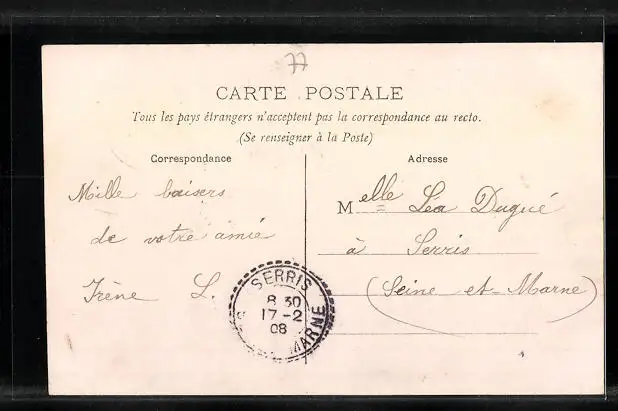 77
CARTE POSTALE
Tous les pays étrangers n'acceptent pas la correspondance au recto.
(Se renseigner à la Poste)
Correspondance
Mille baisers
de votre amie
Irène L.
Adresse
Melle Léa Dugué
à Serris
(Seine et-Marne)
SERRIS
8 30
17-2
08
MARNE